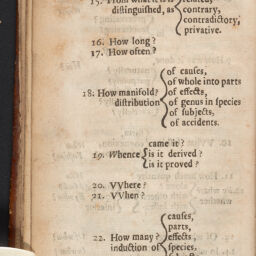 15. From what it is
related,
distinguished, as
contrary,
contradictory,
privative.
16. How long?
17. How often?
18. How manifold?
distribution
of causes,
of whole into parts
of effects,
of genus in species
of subjects,
of accidents.
19. Whence
came it?
is it derived?
is it proved?
20. VVhere?
21. VVhen?
22. How many?
induction of
causes,
parts,
effects,
species,